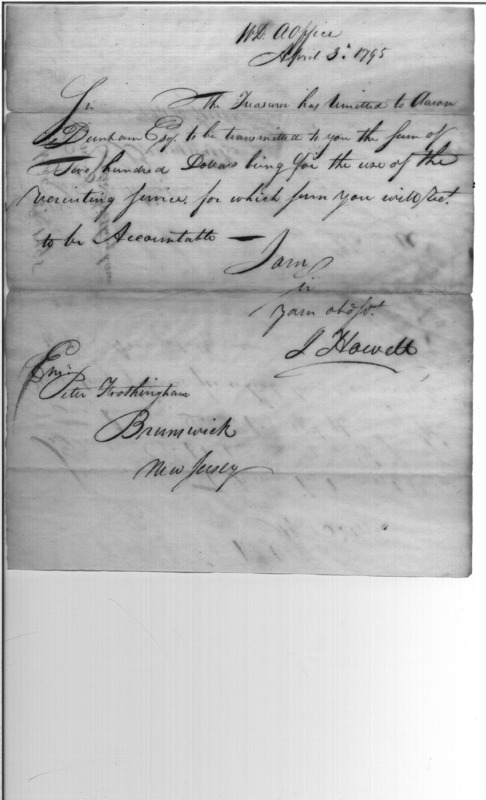 W.D. A Office
April 3d. 1795
Sir The Treasurer has remitted to Aaron
Dunham Esqr. to be transmitted to you the sum of
Two hundred Dollars being for the use of the
recruiting service, for which sum you will
to be Accountable —
I am
Sir
Your obd. St.
J Howell
Ensn.
Peter Frothingham
Brunswick
New Jersey